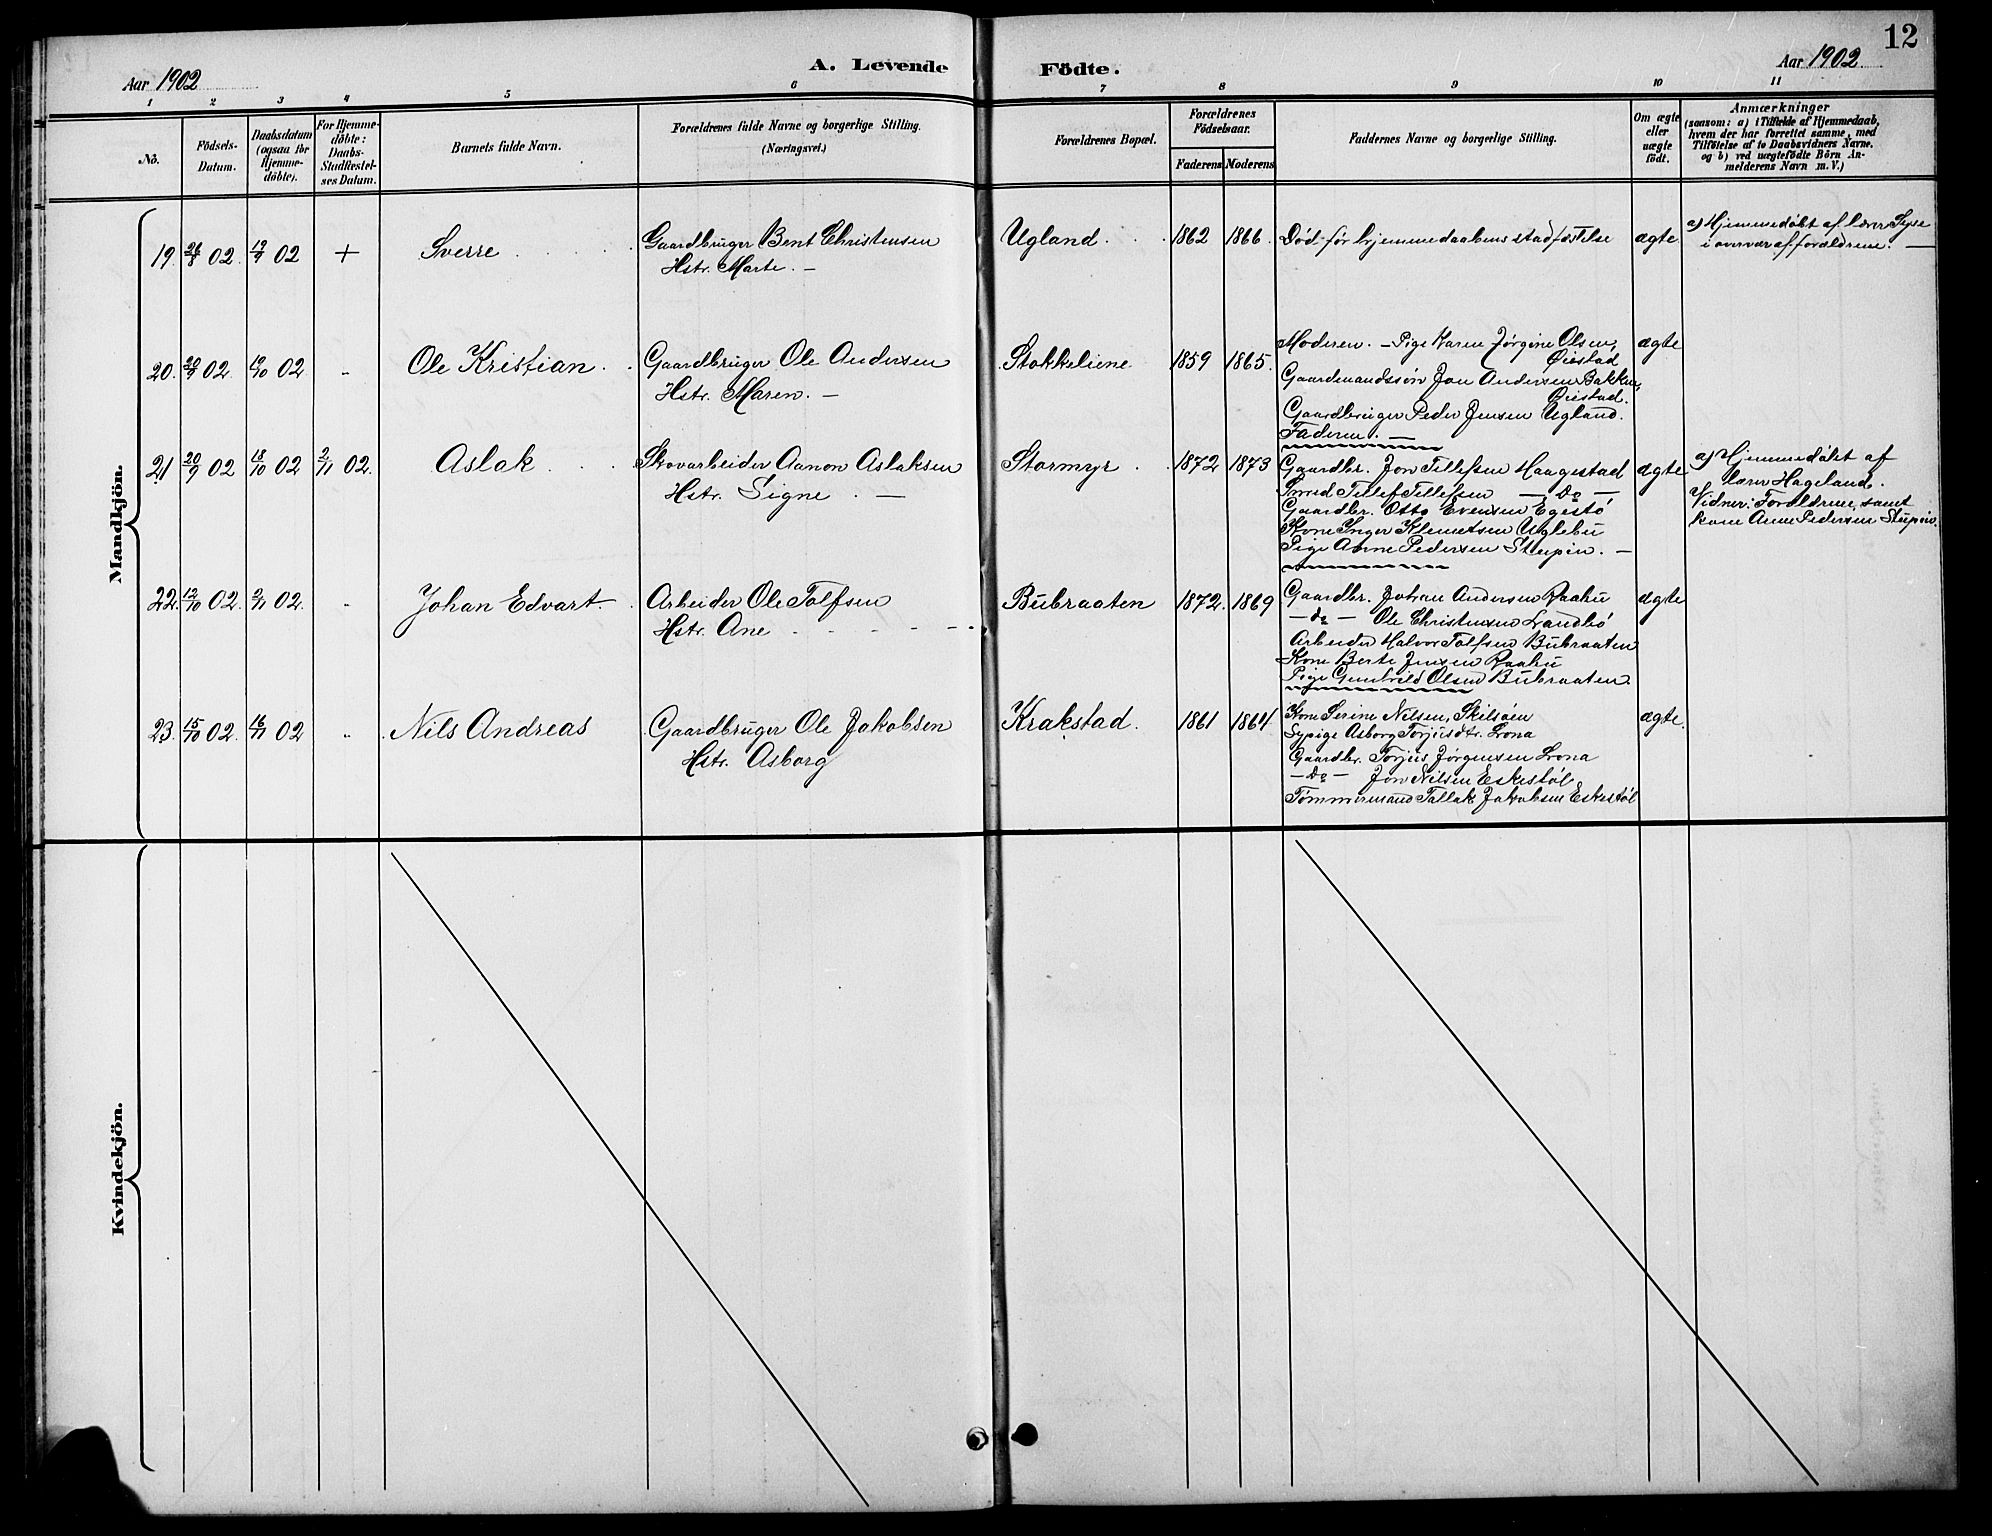 12
Aar 1902
A. Levende Födte.
Aar 1902
1 2 3 4 5 6 7 8 9 10 11
No.
Födsels-Datum.
Daabsdatum (ogsaa for Hjemme-döbte).
For Hjemme-döbte: Daabs-Stadfæstel-ses Datum.
Barnets fulde Navn.
Forældrenes fulde Navne og borgerlige Stilling. (Næringsvei.)
Forældrenes Bopæl.
Forældrenes Födselsaar.
Faderens Moderens
Faddernes Navne og borgerlige Stilling.
Om ægte eller uægte født.
Anmærkninger
(saasom: a) i Tilfælde af Hjemmedaab,
hvem der har forrettet samme, med
Tilføielse af to Daabsvidners Navne.
og b) ved uægtefödte Börn An-
melderens Navn m. V.)
Mandkjön.
19. 26/8 02. 19/9 02 + Sverre Gaardbruger Bent Christensen Ugland. 1862 1866. Død før hjemmedaabens stadfæstelse ægte. a) Hjemmedøbt af lærer
Hstr. Marte. — i overvær af forældrene. —
20. 02 19/10 02 " Ole Kristian. Gaardbruger Ole Andersen Stokkeliene 1859 1865. Moderen. — Pige Karen Jørgine Olsen, ægte
Øiestad
Hstr. Maren. — Gaardmandssøn Jon Andersen Bakken,
Øiestad.
Gaardbruger Peder Jensen Ugland.
Faderen. —
21 20/9 02 18/10 02 2/11 02. Aslak Skovarbeider Aanon Aslaksen Stormyr 1872 1873 Gaardbr. Jon Tellefsen Haagestad ægte a) Hjemmedøbt af
Hstr. Signe. — Tellef Tellefsen — do — lærer Hageland.
Gaardbr. Otto Evensen Egestø Vidner: Forældrene, samt
Kone Inger Klemetsen Uglebu kone Anne Pedersen
Pige Anne Pedersen —
22. 12/10 02. 2/11 02. " Johan Edvart. Arbeider Ole Tolfsen Bubraaten 1872. 1869 Gaardbr. Johan Andersen Raabu ægte
Hstr. Ane — do — Ole Christensen Landbø
Arbeider Halvor Tolfsen Bubraaten
Kone Berte Jensen Raabu
Pige Gunhild Olsen Bubraaten.
23. 15/10 02. 16/11 02 " Nils Andreas Gaardbruger Ole Jakobsen Krakstad. 1861 1864 Kone Serine Nilsen, Skilsøen ægte.
Hstr. Asborg Sypige Asborg Torjusdtr. Lrona
Gaardbr. Torjus Jørgensen Lrona
— do — Jon Nilsen Eskestøl
Tømmermand Tallak Jakobsen Eskestøl
Kvindekjön.